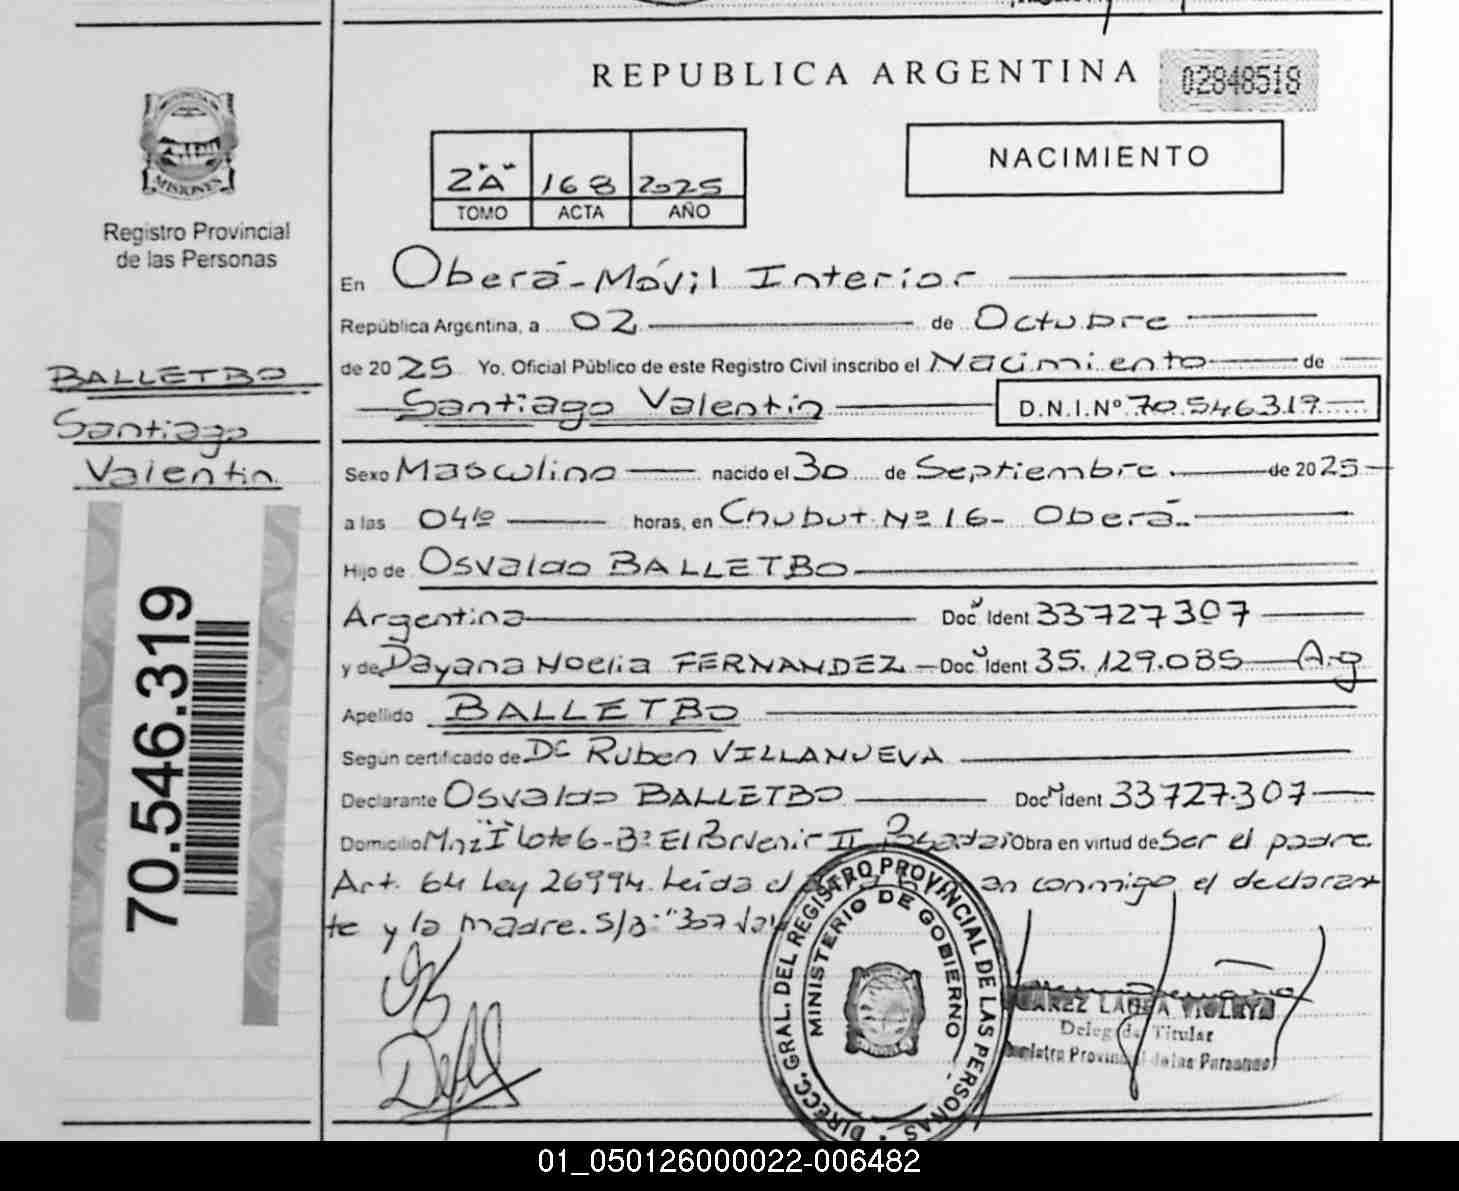 REPUBLICA ARGENTINA
02848518
2"A" 168 2025
TOMO ACTA AÑO
NACIMIENTO
MISIONES
Registro Provincial
de las Personas
BALLETBO
Santiago
Valentín
70.546.319
En Oberá-Móvil Interior
República Argentina, a 02 de Octubre
de 2025 Yo, Oficial Público de este Registro Civil inscribo el Nacimiento de
Santiago Valentín D.N.I.Nº 70.546.319
Sexo Masculino nacido el 30 de Septiembre de 2025
a las 04 10 horas, en Chubut Nº 16- Oberá.
Hijo de Osvaldo BALLETBO
Argentina Doc. Ident 33727307
y de Dayana Noelia FERNANDEZ Doc. Ident 35.129.085 Arg
Apellido BALLETBO
Según certificado de Dr Ruben VILLANUEVA
Declarante Osvaldo BALLETBO Doc. Ident 33727.307
Domicilio Mnz I lote 6-Bº El Porvenir II Posadas Obra en virtud de Ser el padre
Art. 64 Ley 26994. Leída el an conmigo el declaran
te y la madre. S/B: "307
DIRECC. GRAL. DEL REGISTRO PROVINCIAL DE LAS PERSONAS
MINISTERIO DE GOBIERNO
Titular
01_050126000022-006482